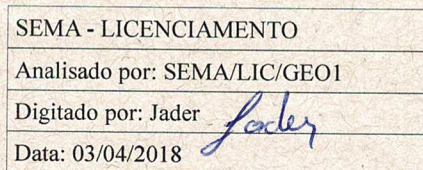 SEMA - LICENCIAMENTO
Analisado por: SEMA/LIC/GEO1
Digitado por: Jader Jader
Data: 03/04/2018